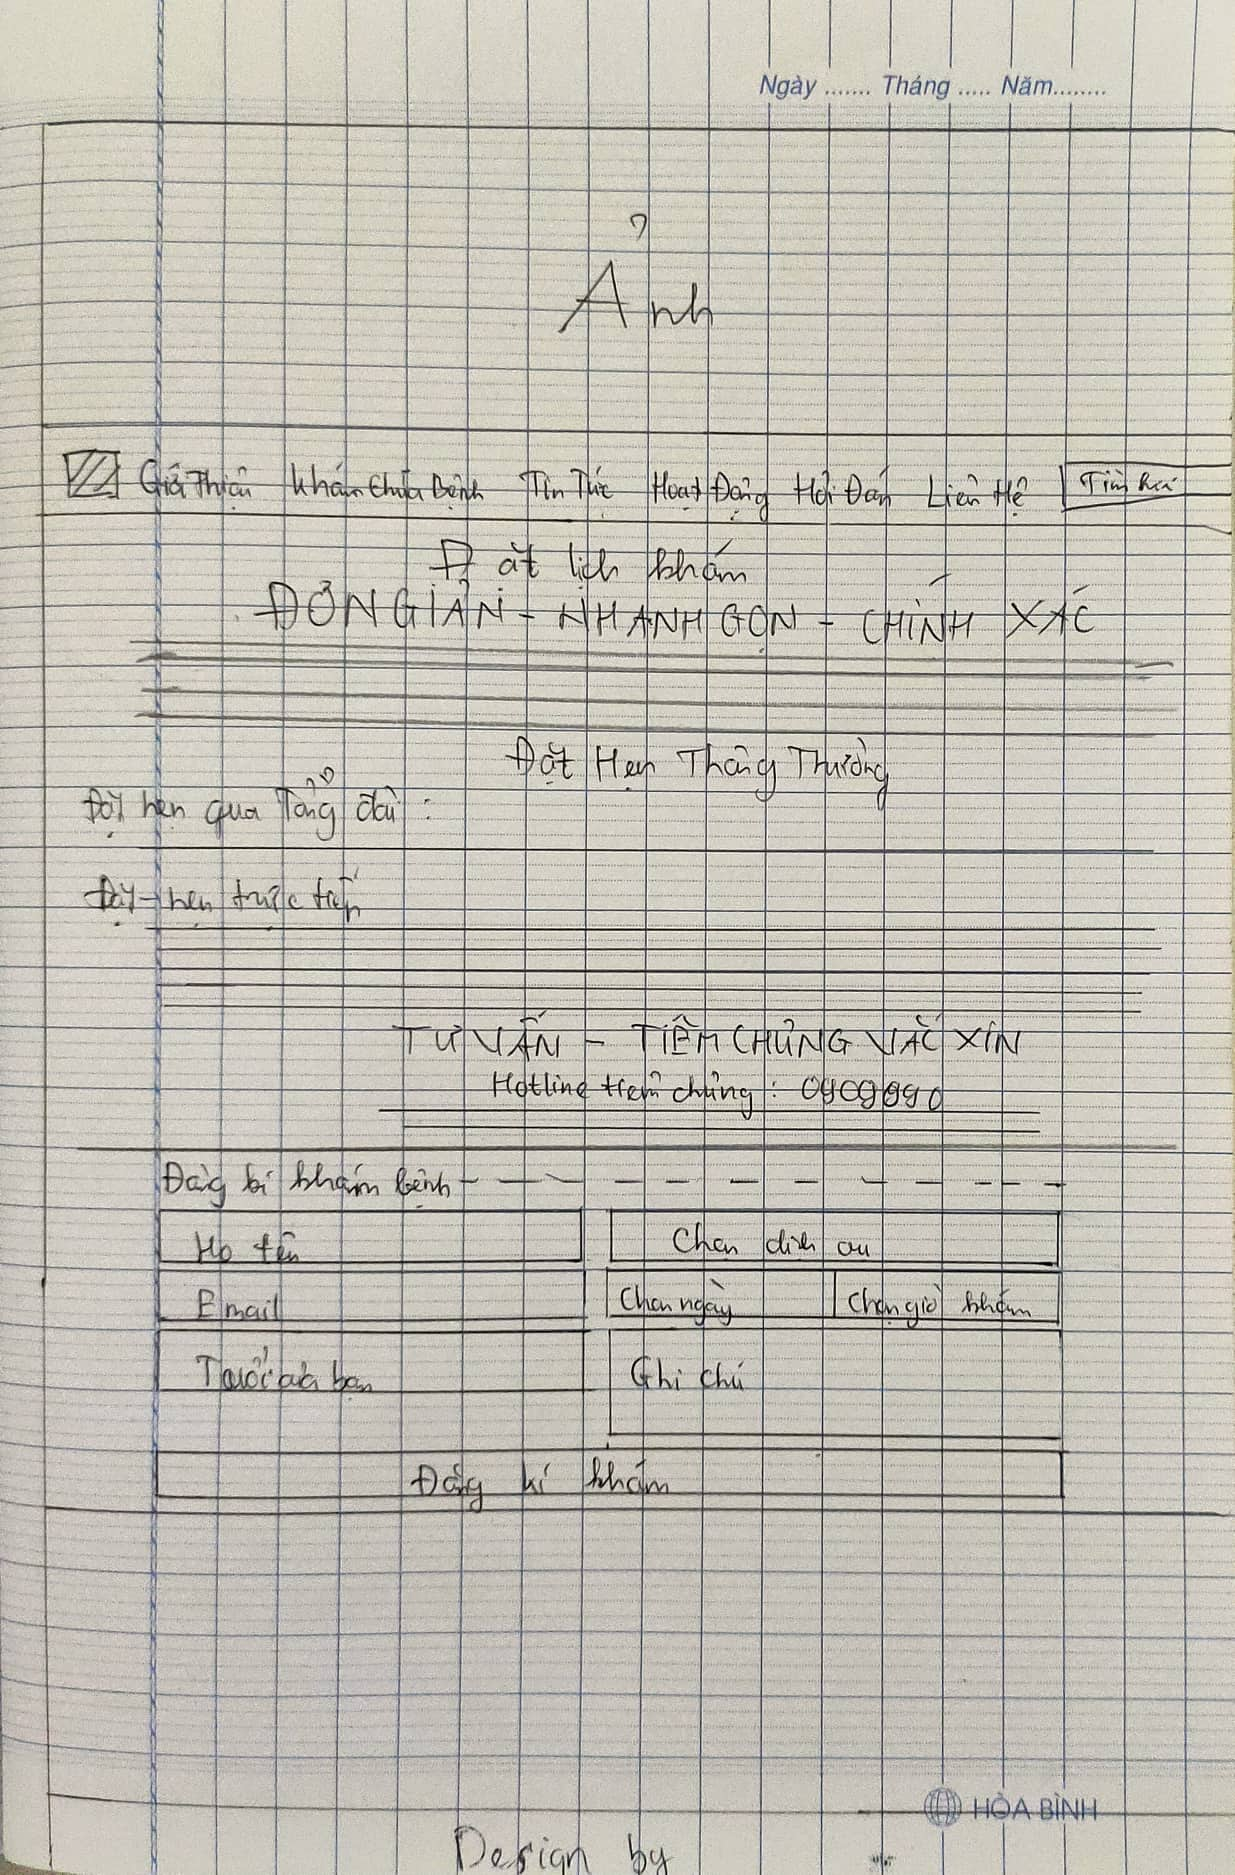 Ngày ....... Tháng ..... Năm........
Ảnh
Giới Thiệu Khám Chữa Bệnh Tin Tức Hoạt Động Hỏi Đáp Liên Hệ Tìm kiếm
Đặt lịch khám
ĐƠN GIẢN - NHANH GỌN - CHÍNH XÁC
Đặt Hẹn Thông Thường
Đặt hẹn qua Tổng đài :
Đặt hẹn trực tiếp
TƯ VẤN - TIÊM CHỦNG VẮC XIN
Hotline tiêm chủng :
Đăng kí khám bệnh
Họ tên
Email
Chọn ngày Chọn giờ khám
Tuổi của bạn Ghi chú
Đăng kí khám
HÒA BÌNH
Design by